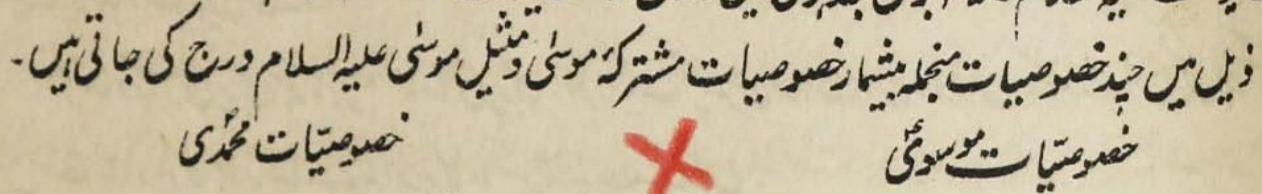 ذیل میں چند خصوصیات منجملہ بیشمار خصوصیات مشترکۂ موسیٰ و مثیل موسیٰ علیہ السلام درج کی جاتی ہیں۔
خصوصیّات موسویؑ خصوصیّات محمدؐی